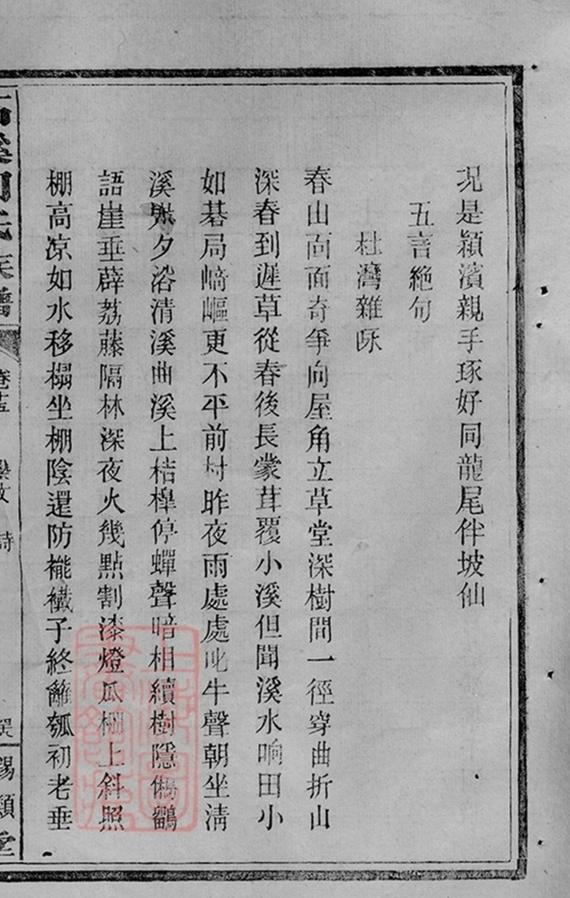 況是穎濱親手琢好同龍尾伴坡仙
五言絶句
杜灣雜咏
春山面面奇爭向屋角立草堂深樹間一徑穿曲折山
深春到遲草從春後長蒙茸覆小溪但聞溪水响田小
如碁局﨑嶇更不平前村昨夜雨處處叱牛聲朝坐淸
溪夕浴清溪曲溪上桔橰停蟬聲暗相續樹隱
語崖垂薜荔藤隔林深夜火幾點割漆燈瓜棚上斜照
棚高凉如水移榻坐棚陰還防褦襶子終籬瓠初老垂
氏族譜 卷 藝文 詩 錫類堂